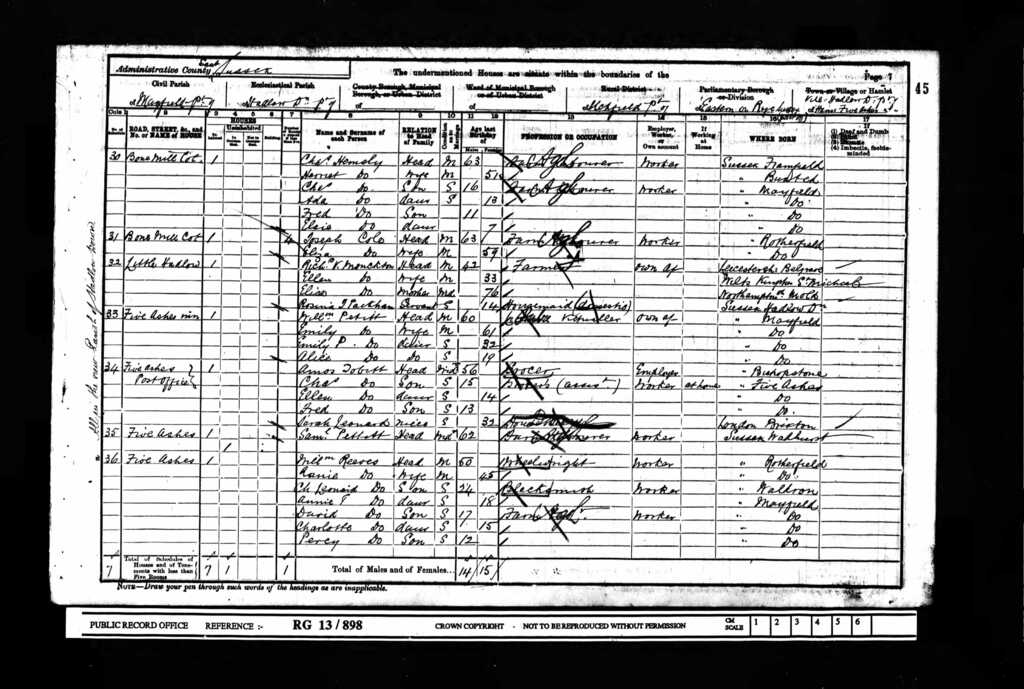 Administrative County East Sussex
The undermentioned Houses are situate within the boundaries of the
Page 7
45
Civil Parish
Ecclesiastical Parish
County Borough, Municipal Borough, or Urban District
Ward of Municipal Borough or of Urban District
Rural District
Parliamentary Borough or Division
Town or Village or Hamlet
of Mayfield Pt of
Hadlow Dn Pt of
of
of
of Uckfield Pt of
Eastern or Rye
No. of Schedule
ROAD, STREET, &c., and No. or NAME of HOUSE
HOUSES
Name and Surname of each Person
RELATION to Head of Family
Condition as to Marriage
Age last Birthday of
PROFESSION OR OCCUPATION
Employer, Worker, or Own account
If Working at Home
WHERE BORN
(1) Deaf and Dumb
(4) Imbecile, feeble-minded
30 Bones Mill Cot 1 Chas Hemsly Head M 63 Labourer Worker Sussex Framfield
Harriet Do Wife M 51 " Buxted
Chas Do Son S 16 Labourer Worker " Mayfield
Ada Do daur S 13 " Do
Fred Do Son 11 " Do
Elsie Do daur 7 " Do
31 Bones Mill Cot 1 4 Joseph Cole Head M 63 Farm Labourer Worker " Rotherfield
Eliza Do Wife M 59 " Do
32 Little Hadlow 1 Richd K Monckton Head M 42 Farmer own ac Leicestersh Belgrave
Ellen Do Wife M 33 Wilts
Eliza Do Mother Wd 76 Northampton
Servant S 14 Housemaid (domestic) Sussex Hadlow Dn
33 Five Ashes 1 Willm Petitt Head M 60 own ac " Mayfield
Emily Do Wife M 61 " Do
Emily P. Do daur S 32 " Do
Alice Do Do S 19 " Do
34 Five Ashes Post Office 1 Amos Tobitt Head Wd 56 Grocer Employer " Bishopstone
Chas Do Son S 15 Worker at home " Five Ashes
Ellen Do daur S 14 " Do
Fred Do Son S 13 " Do
Sarah Leonard niece S 32 London Brixton
35 Five Ashes 1 Saml Head Wd 62 Labourer Worker Sussex Wadhurst
1
36 Five Ashes 1 Willm Reeves Head M 50 Wheelwright Worker " Rotherfield
Do Wife M 45 " Do
Ch Leonard Do Son S 24 Blacksmith Worker " Waldron
Annie Do daur S 18 " Mayfield
David Do Son S 17 Farm Worker " Do
Charlotte Do daur S 15 " Do
Percy Do Son S 12 " Do
7 Total of Schedules of Houses and of Tenements with less than Five Rooms 7 1 1 Total of Males and of Females... 14 15
NOTE—Draw your pen through such words of the headings as are inapplicable.
PUBLIC RECORD OFFICE REFERENCE :- RG 13/898 CROWN COPYRIGHT - NOT TO BE REPRODUCED WITHOUT PERMISSION CM SCALE 1 2 3 4 5 6